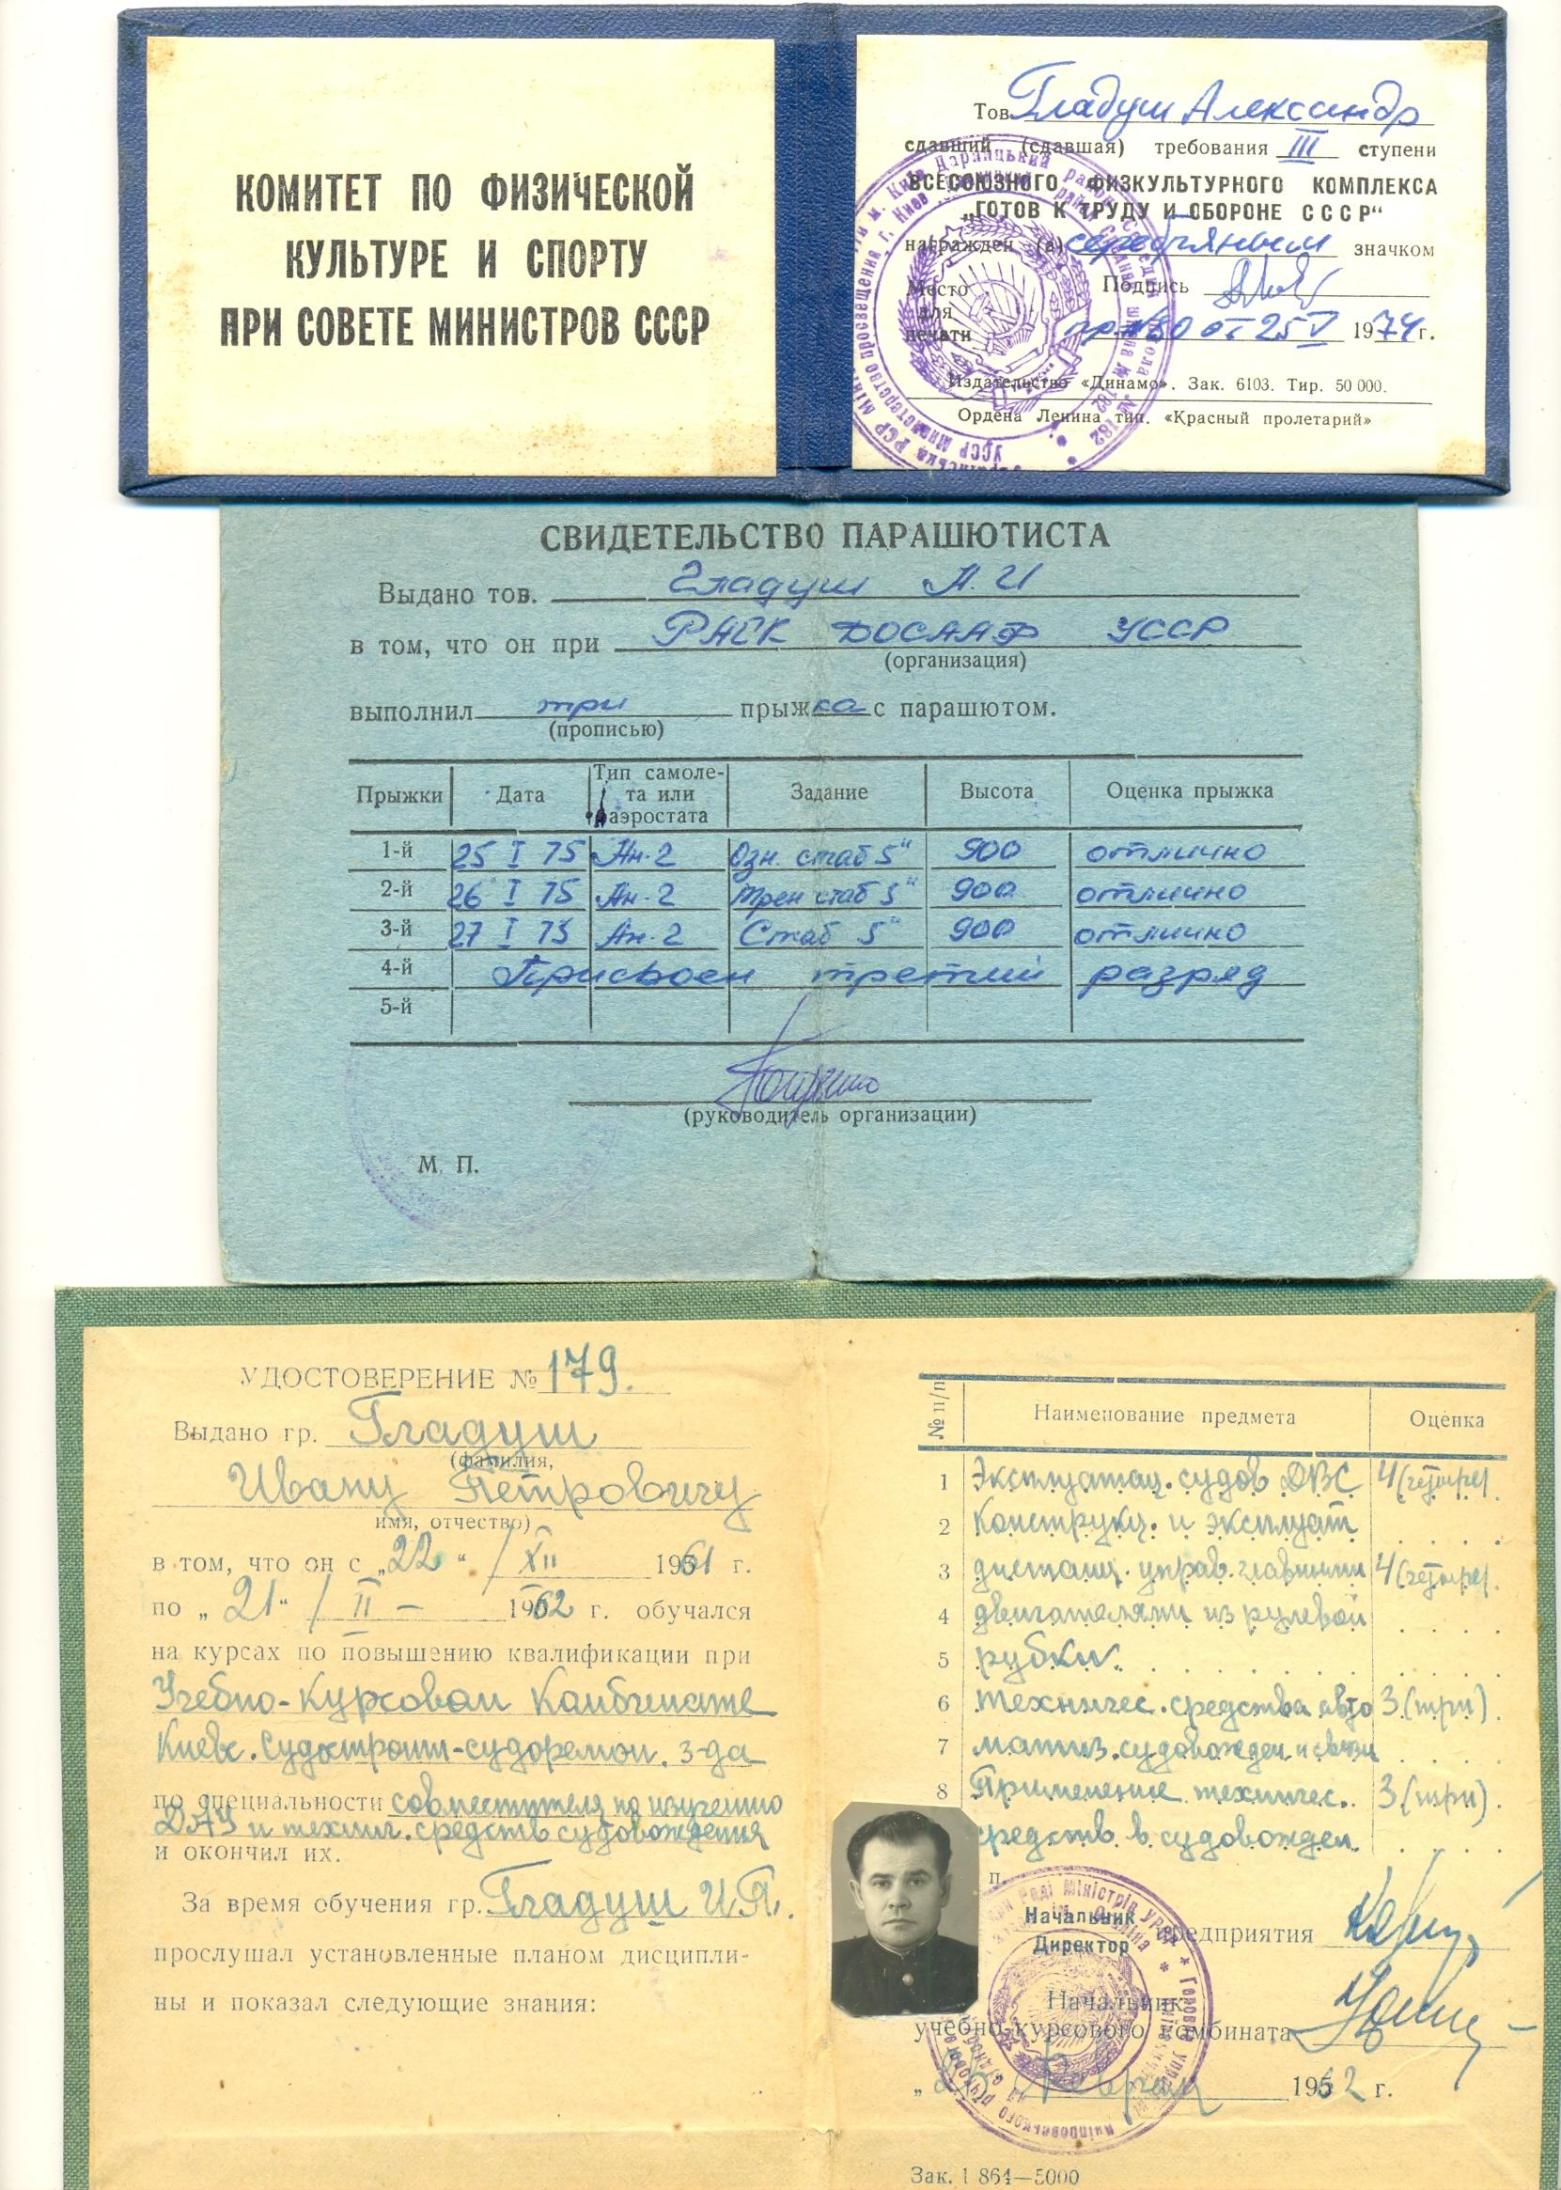 КОМИТЕТ ПО ФИЗИЧЕСКОЙ
КУЛЬТУРЕ И СПОРТУ
ПРИ СОВЕТЕ МИНИСТРОВ СССР
Тов. Гладуш Александр
сдавший (сдавшая) требования III ступени
ВСЕСОЮЗНОГО ФИЗКУЛЬТУРНОГО КОМПЛЕКСА
„ГОТОВ К ТРУДУ И ОБОРОНЕ СССР“
награжден (а) серебряным значком
Место Подпись
для
печати пр №80 от 25 V 1974 г.
Издательство «Динамо». Зак. 6103. Тир. 50 000.
Ордена Ленина тип. «Красный пролетарий»
СВИДЕТЕЛЬСТВО ПАРАШЮТИСТА
Выдано тов. Гладуш А. И
в том, что он при РАСК ДОСААФ УССР
(организация)
выполнил три прыжка с парашютом.
(прописью)
Прыжки Дата Тип самолета или аэростата Задание Высота Оценка прыжка
1-й 25 I 75 Ан-2 Озн. стаб 5" 900 отлично
2-й 26 I 75 Ан-2 Трен стаб 5" 900 отлично
3-й 27 I 75 Ан-2 Стаб 5" 900 отлично
4-й Присвоен третий разряд
5-й
(руководитель организации)
М. П.
УДОСТОВЕРЕНИЕ № 179.
Выдано гр. Гладуш
(фамилия,
Ивану Петровичу
имя, отчество)
в том, что он с „22“ / XII 1961 г.
по „21“ / II – 1962 г. обучался
на курсах по повышению квалификации при
Учебно-курсовом Комбинате
Киевс. Судостроит-судоремон. з-да
по специальности совместителя по изучению
ДАУ и технич. средств судовождения
и окончил их.
За время обучения гр. Гладуш И.П.
прослушал установленные планом дисципли-
ны и показал следующие знания:
№ п/п Наименование предмета Оценка
1 Эксплуатац. судов ДВС 4 (четыре)
2 Конструкц. и эксплуат
3 дистанц. управ. главными 4 (четыре)
4 двигателями из рулевой
5 рубки.
6 Техничес. средства авто 3 (три)
7 матиз. судовожден и связи
8 Применение техничес. 3 (три).
средств в судовожден.
п.
Начальник предприятия
Директор
Начальник
учебно-курсового комбината
1962 г.
Зак. 1864—5000